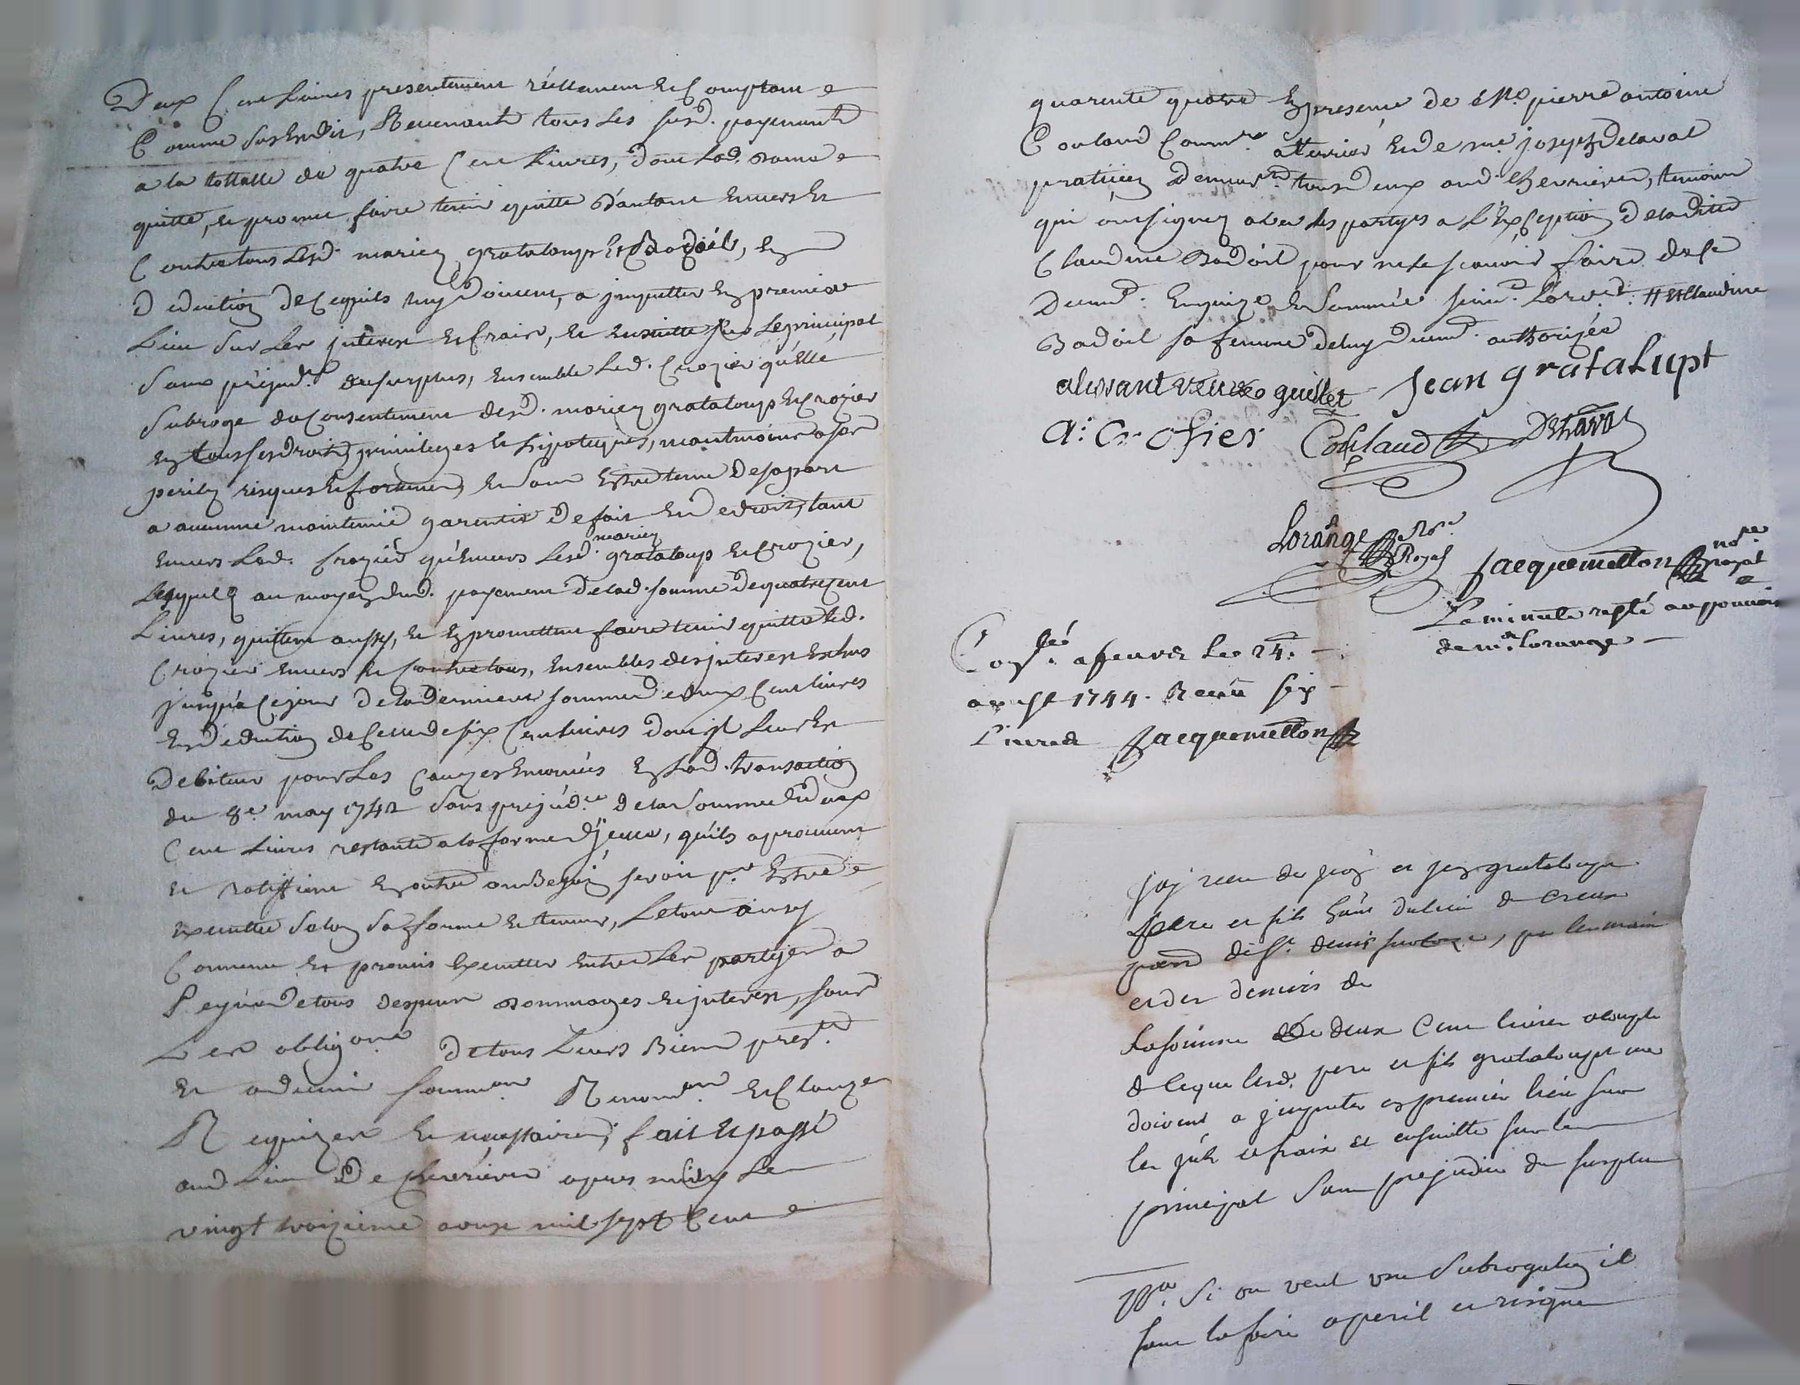 Deux Cent Livres presentement réellement et Comptant
Comme sus est dit, Revenants tous les susd. payements
a la tottalle de quatre Cent Livres, dont lad. dame
quitte, et promet faire tenir quitte d'autant envers et
Contre tous lesd. mariez grataloup et Badoil, en
deduction de ce quils luy doivent, a imputter en premier
Lieu sur les interest et frais, et ensuitte sur le principal
sans préjud. du surplus, ensemble led. Crozier qu'elle
subroge du consentement desd. mariez grataloup et crozier
en tous ses droits, privileges et hipoteques, neantmoins a ses
perils risques et fortunes, et sans estre tenue de sa part
a aucunne maintenue garentie de fait et de droit, tant
envers led. Crozier qu'envers lesd. mariez grataloup et Crozier,
lesquels au moyen dud. payement de lad. somme de quatre cent
Livres, quittent aussy, et promettent faire tenir quitte led.
Crozier envers et contre tous, ensembles des interest echus
jusqu'a ce jour de la derniere somme de deux Cent livres
en déduction de celle de six Cent livres dont il leur est
debiteur pour les causes enoncées en lad. transaction
du 8e may 1742 sans prejud.ce de la somme de deux
Cent Livres restante a la forme d'jcelle, qu'ils aprouvent
et ratiffient en outre au besoin pour estre
executée selon sa forme et teneur, Le tout ainsy
Convenu et promis executter entre les partyes a
peyne de tous despens dommages et interest, sous
Les obligons de tous Leurs Biens pres.ts
et advenir soum.on Renon.on et Clauzes
Requizes et necessaires, fait et passé
aud. Lieu de Chevrieres apres midy le
vingt troizieme aoust mil sept Cent
quarente quatre en presence de Mo. pierre antoine
Coulaud Comm.re a terrier et de me joseph delaval
praticien demeur.ts tous deux aud. Chevrieres, temoins
qui ont signez avec les partyes a l'exception de ladite
Claudine Badoil pour ne le scavoir faire de ce
deum.t enquize et sommée suiv.t l'ord.ce # et Claudine
Badoil sa femme de luy deum.t authorizée
alissant veuve guillet Jean gratalupt
a. Crosier Coulaud Delaval
Lorange No.re Royal Jacquemetton no.re royal
La minute resté au pouvoir
de m.e Lorange
Con.lé a feurs le 24.
aoust 1744. Receu six
Livres Jacquemetton
j'ay receu de et jean grataloup
pere et fils du lieu de
par les mains
et des deniers de
La somme de deux Cent livres a compte
de ceque lesd. pere et fils grataloup me
doivent a jmputer en premier lieu sur
les jnts et frais et ensuitte sur le
principal sans prejudice du surplus
Na. Si on veut une subrogation il
faut la faire a peril et risque